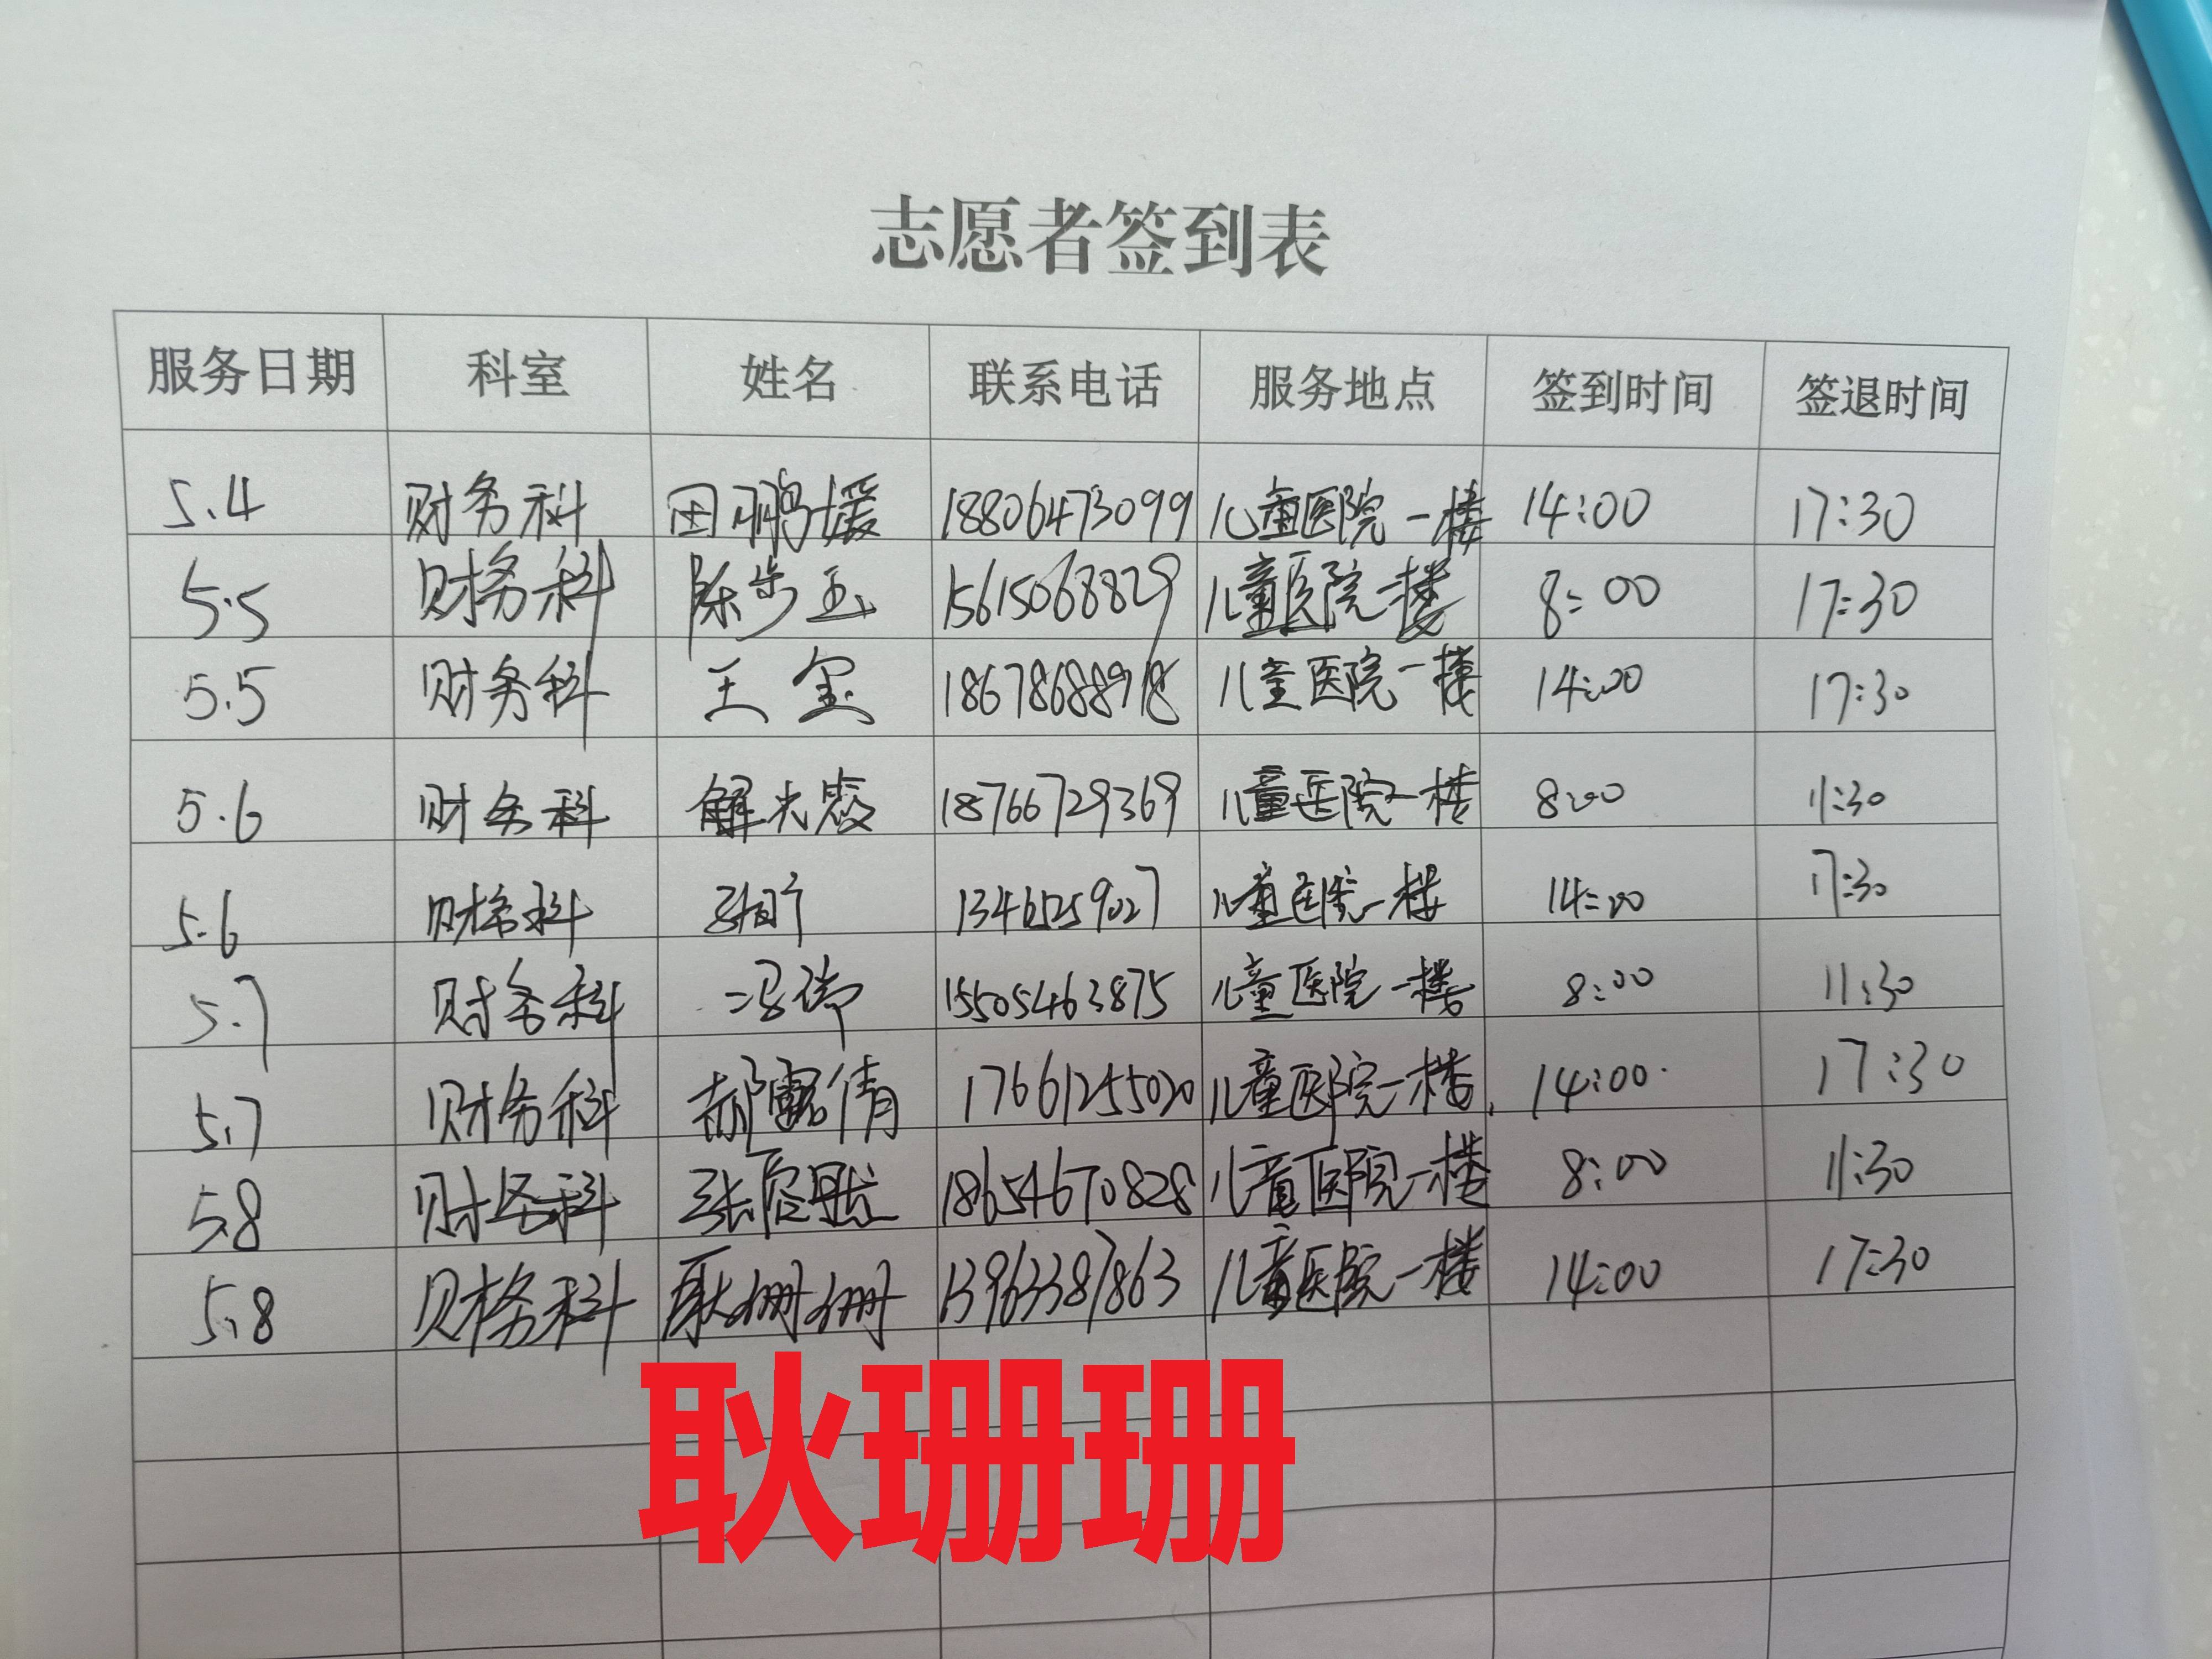 志愿者签到表
服务日期 科室 姓名 联系电话 服务地点 签到时间 签退时间
5.4 财务科 田鹏媛 18806473099 儿童医院一楼 14:00 17:30
5.5 财务科 陈步玉 15615068829 儿童医院一楼 8:00 17:30
5.5 财务科 王玺 18678688918 儿童医院一楼 14:00 17:30
5.6 财务科 解光 18766729369 儿童医院一楼 8:00 11:30
5.6 财务科 儿童医院一楼 14:00 17:30
5.7 财务科 冯瑞 15505463875 儿童医院一楼 8:00 11:30
5.7 财务科 郝露倩 17661255020 儿童医院一楼 14:00 17:30
5.8 财务科 18654670828 儿童医院一楼 8:00 11:30
5.8 财务科 耿珊珊 13963387863 儿童医院一楼 14:00 17:30
耿珊珊